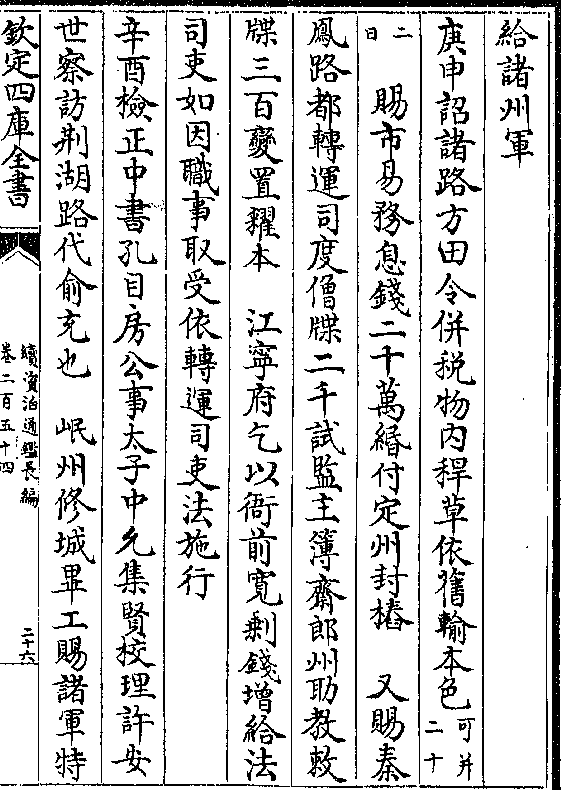 給諸州軍
庚申詔諸路方田令併税物内稈草依舊輸本色可并二十
二日 賜市易務息錢二十萬緡付定州封樁 又賜秦
鳳路都轉運司度僧牒二千試監主簿齋郎州助教敕
牒三百變置糴本 江寧府乞以衙前寬剩錢増給法
司吏如因職事取受依轉運司吏法施行
辛酉檢正中書孔目房公事太子中允集賢校理許安
世察訪荆湖路代俞充也 岷州修城畢工賜諸軍特
欽定四庫全書
續資治通鑑長編
卷二百五十四
二十六